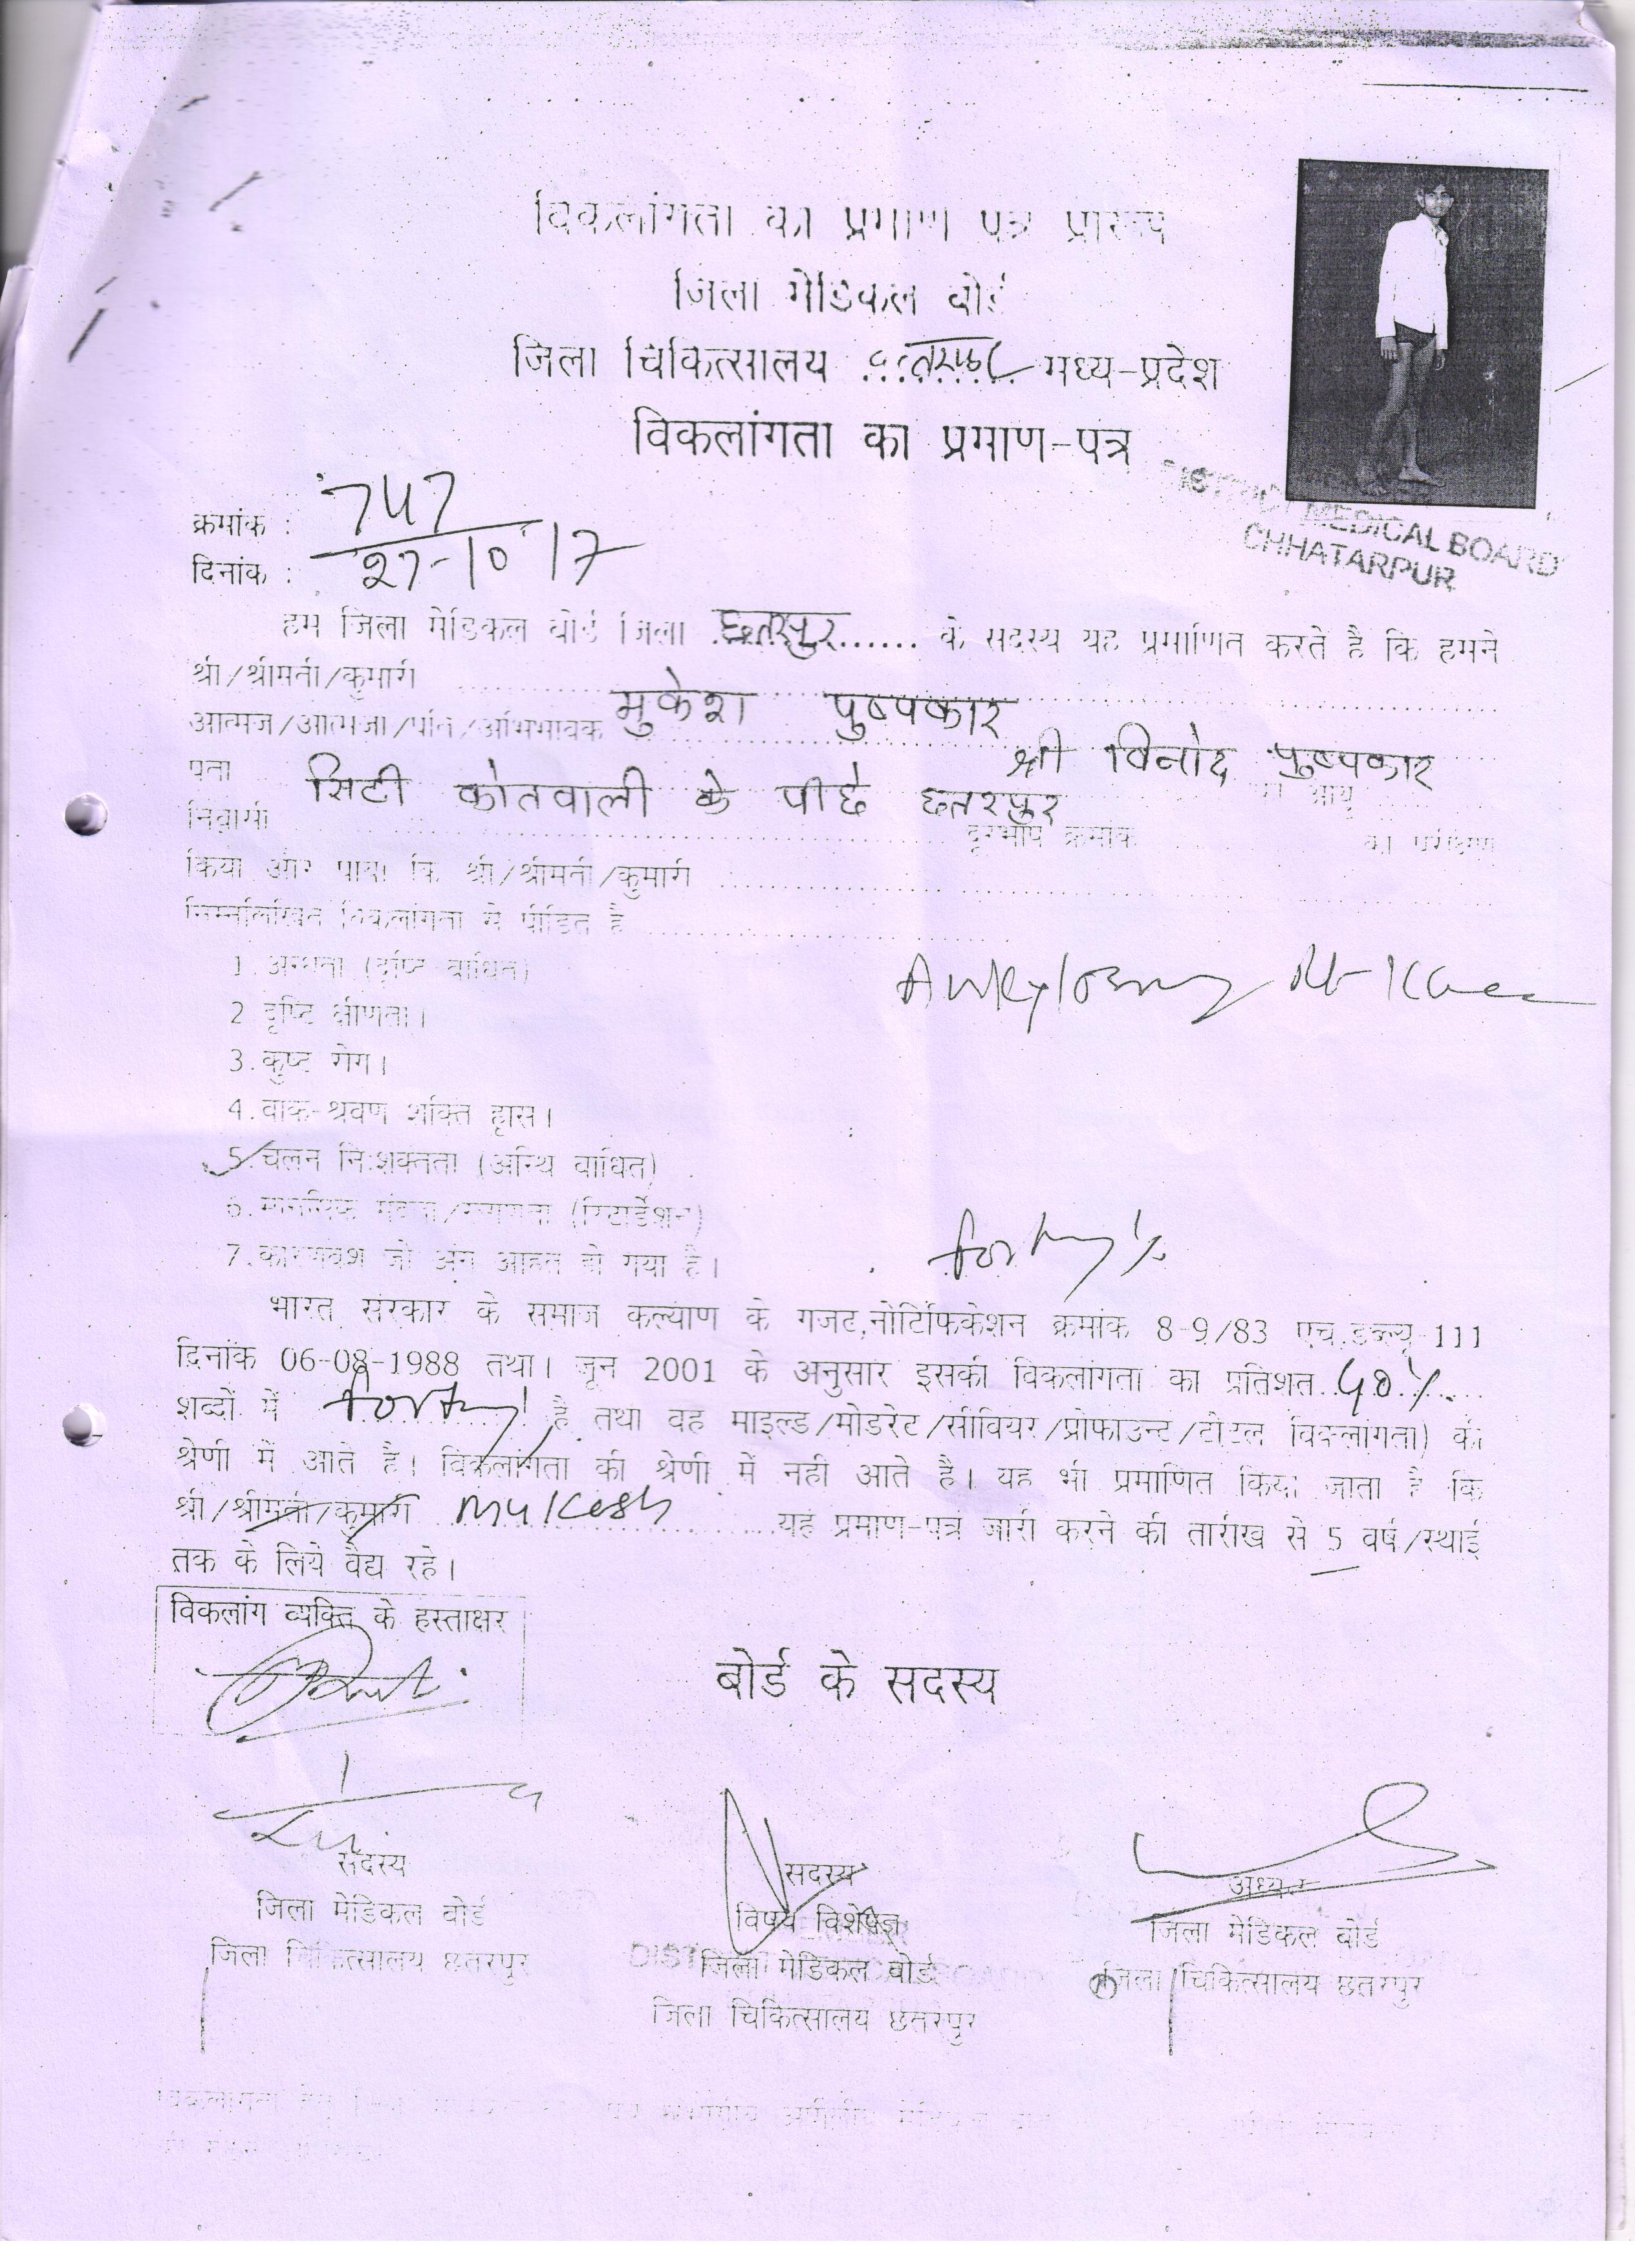 विकलांगता का प्रमाण पत्र प्रारूप
जिला मेडिकल बोर्ड
जिला चिकित्सालय छतरपुर मध्य-प्रदेश
विकलांगता का प्रमाण-पत्र
DISTRICT MEDICAL BOARD
CHHATARPUR
क्रमांक : 747
दिनांक : 27-10-17
हम जिला मेडिकल बोर्ड जिला छतरपुर....... के सदस्य यह प्रमाणित करते है कि हमने
श्री/श्रीमती/कुमारी
मुकेश पुष्पकार
आत्मज/आत्मजा/पति/अभिभावक
श्री विनोद पुष्पकार
पता सिटी कोतवाली के पीछे छतरपुर
आयु
निवासी दूरभाष क्रमांक का परीक्षण
किया और पाया कि श्री/श्रीमती/कुमारी
निम्नलिखित विकलांगता से पीडित है
1. अन्धता (दृष्टि बाधित)
Ankylosing Rt Knee
2 दृष्टि क्षीणता।
3. कुष्ट रोग।
4. वाक-श्रवण शक्ति हास।
5. चलन नि:शक्तता (अस्थि बाधित)
6. मानसिक (रिटार्डेशन)
7. कारणवश जो अंग आहत हो गया है।
forty %
भारत सरकार के समाज कल्याण के गजट,नोटिफिकेशन क्रमांक 8-9/83 एच.डब्ल्यू-111
दिनांक 06-08-1988 तथा। जून 2001 के अनुसार इसकी विकलांगता का प्रतिशत..40%....
शब्दों में forty है तथा वह माइल्ड/मोडरेट/सीवियर/प्रोफाउन्ट/टोटल विकलांगता) की
श्रेणी में आते है। विकलांगता की श्रेणी में नही आते है। यह भी प्रमाणित किया जाता है कि
श्री/श्रीमती/कुमारी Mukesh यह प्रमाण-पत्र जारी करने की तारीख से 5 वर्ष/स्थाई
तक के लिये वैद्य रहे।
विकलांग व्यक्ति के हस्ताक्षर
बोर्ड के सदस्य
सदस्य
जिला मेडिकल बोर्ड
जिला चिकित्सालय छतरपुर
सदस्य
विषय विशेषज्ञ
जिला मेडिकल बोर्ड
जिला चिकित्सालय छतरपुर
अध्यक्ष
जिला मेडिकल बोर्ड
जिला चिकित्सालय छतरपुर